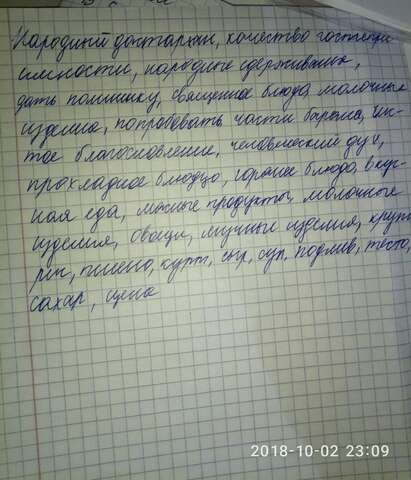 Народный дастархан, качество гостепри
имности, народные сдерживания,
дать поминку, священные блюда молочные
изделие, попробовать части барана, чис-
тое благословление, человеческий дух,
прохладное блюдцо, горячее блюдо, вкус-
ная еда, мясные продукты, молочные
изделия, овощи, мучные изделия, крупы
рис, пшено, курт, сыр, суп, подлив, тесто,
сахар, цена
2018-10-02 23:09